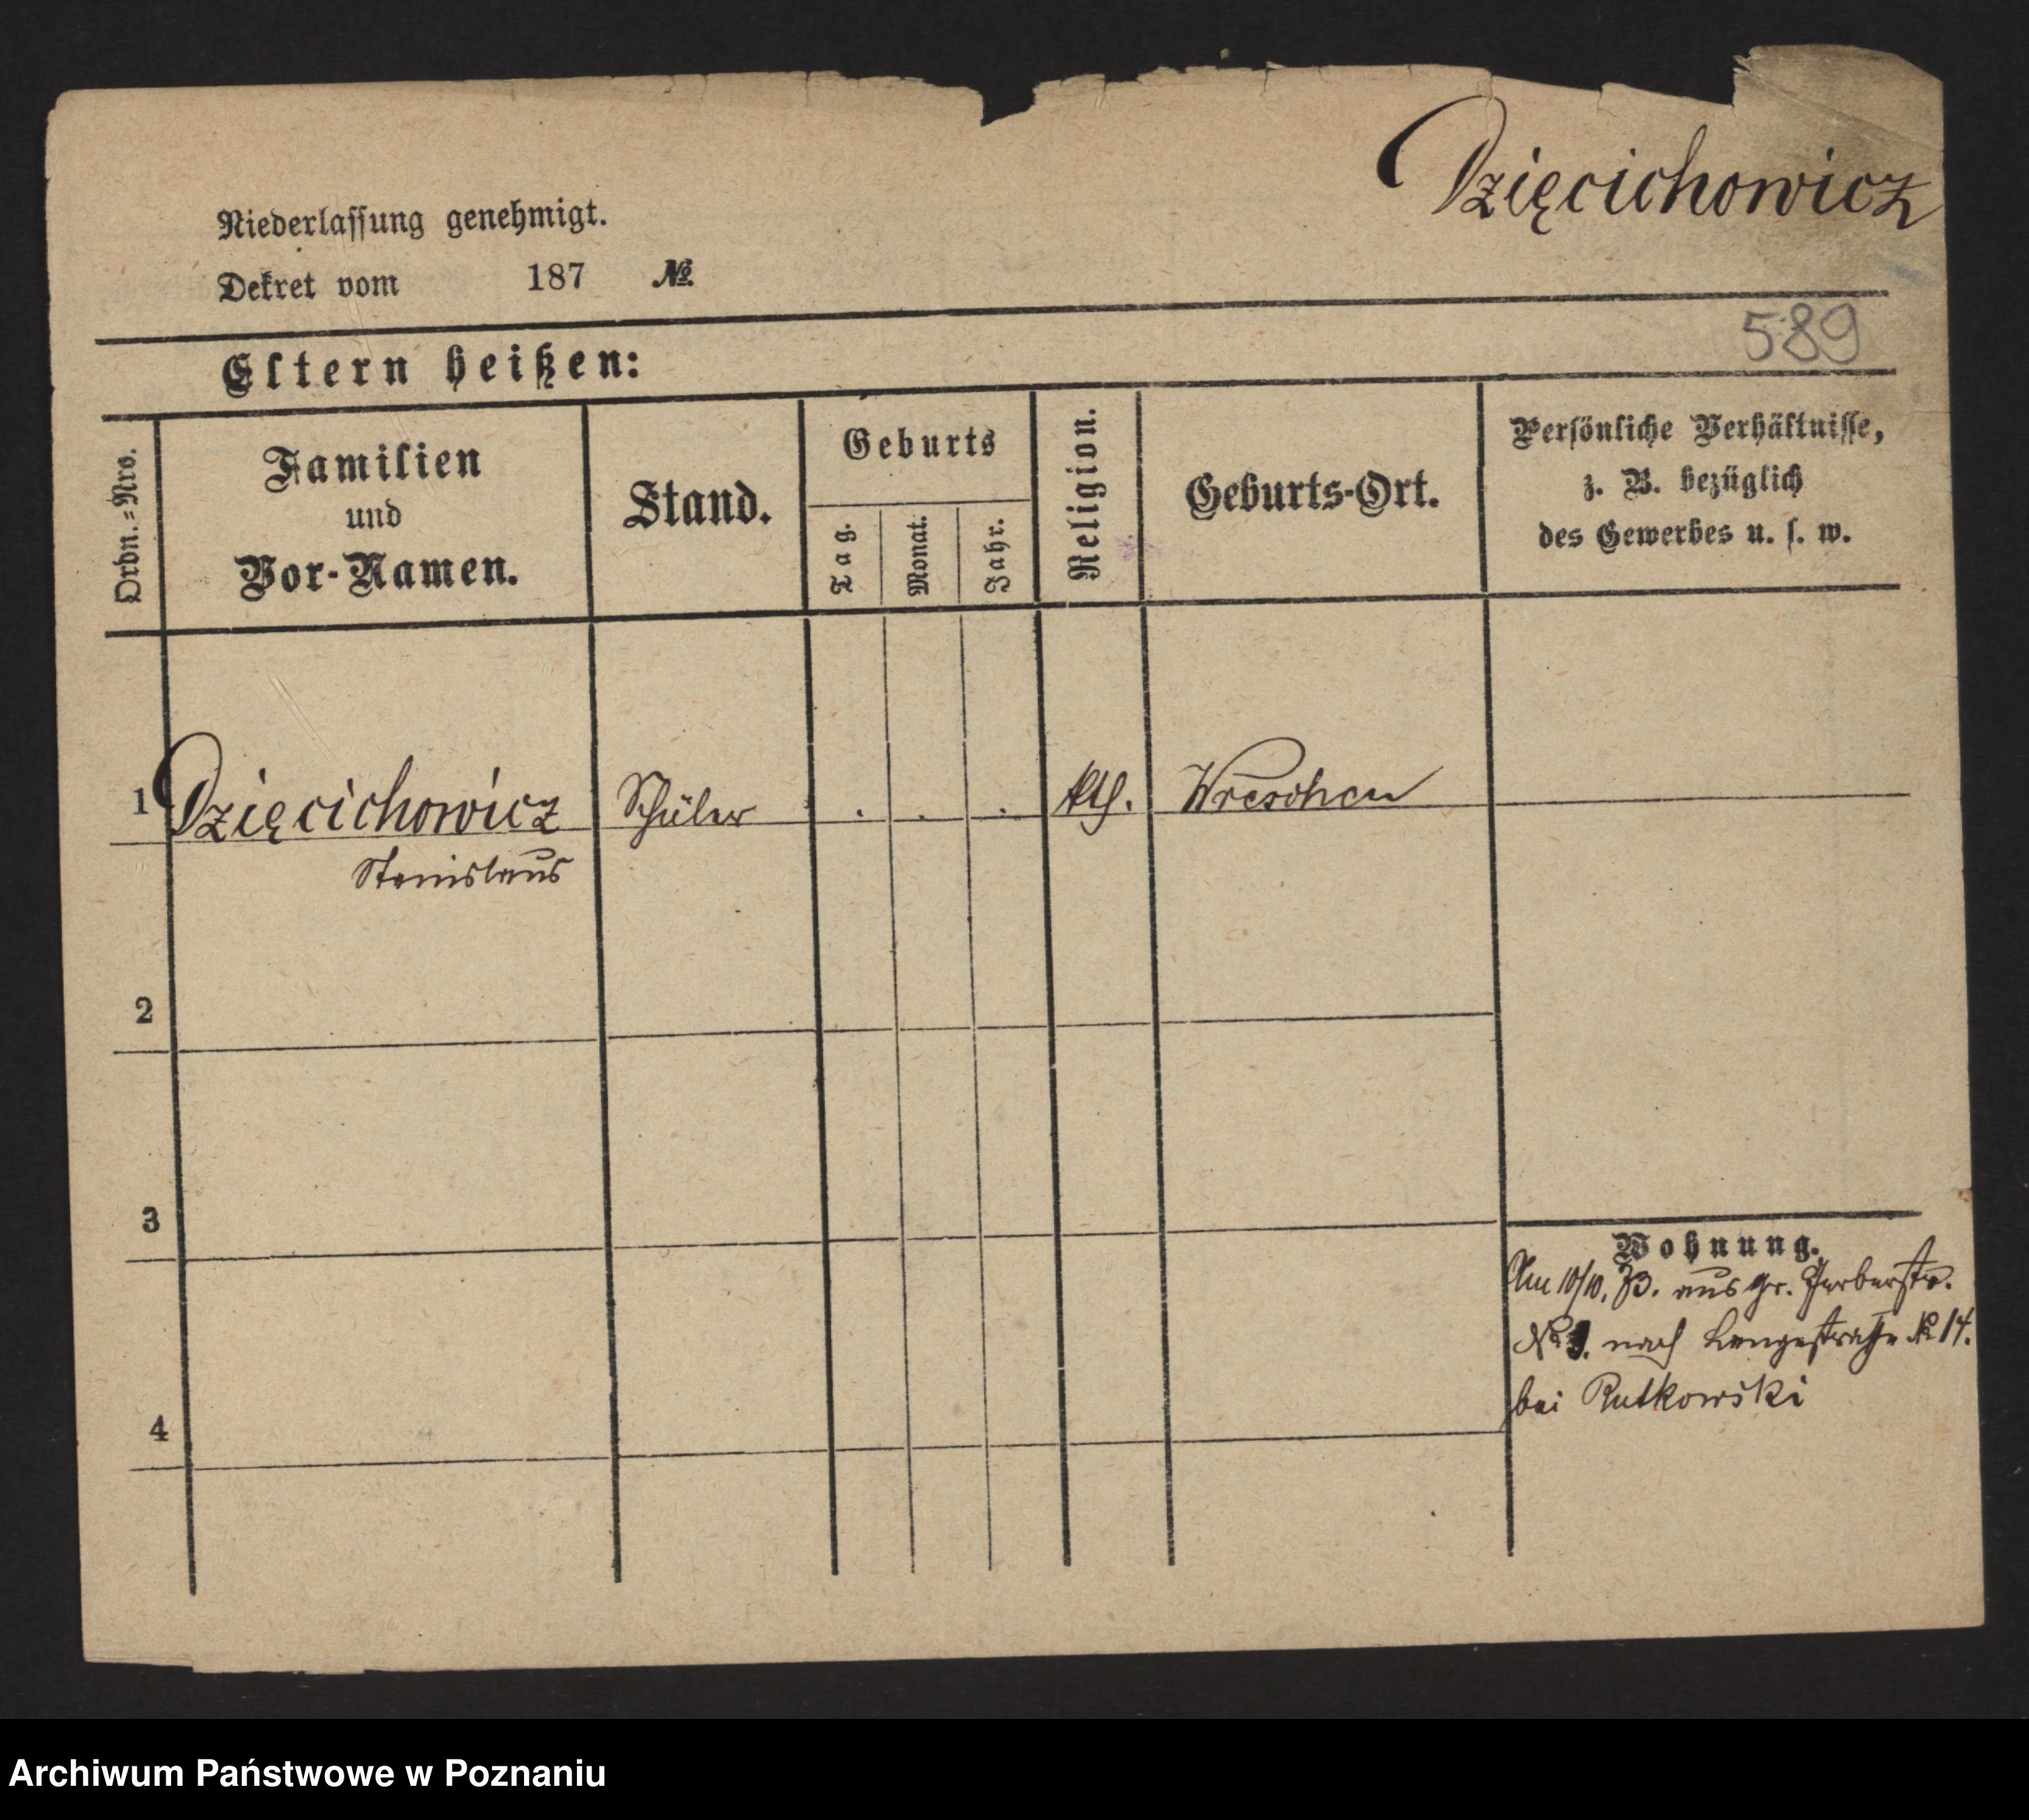 Dzięcichowicz
Niederlassung genehmigt.
Dekret vom 187 №
589
Eltern heißen:
Ordn.=Nro.
Familien
und
Vor-Namen.
Stand.
Geburts
Tag.
Monat.
Jahr.
Religion.
Geburts-Ort.
Persönliche Verhältnisse,
z. B. bezüglich
des Gewerbes u. s. w.
1 Dzięcichowicz Schüler . . . kth. Wreschen
Stanislaus
2
3
4
Wohnung.
Am 10/10. 73. aus gr. Gerberstr.
№ nach Langestraße № 14.
bei Rutkowski
Archiwum Państwowe w Poznaniu